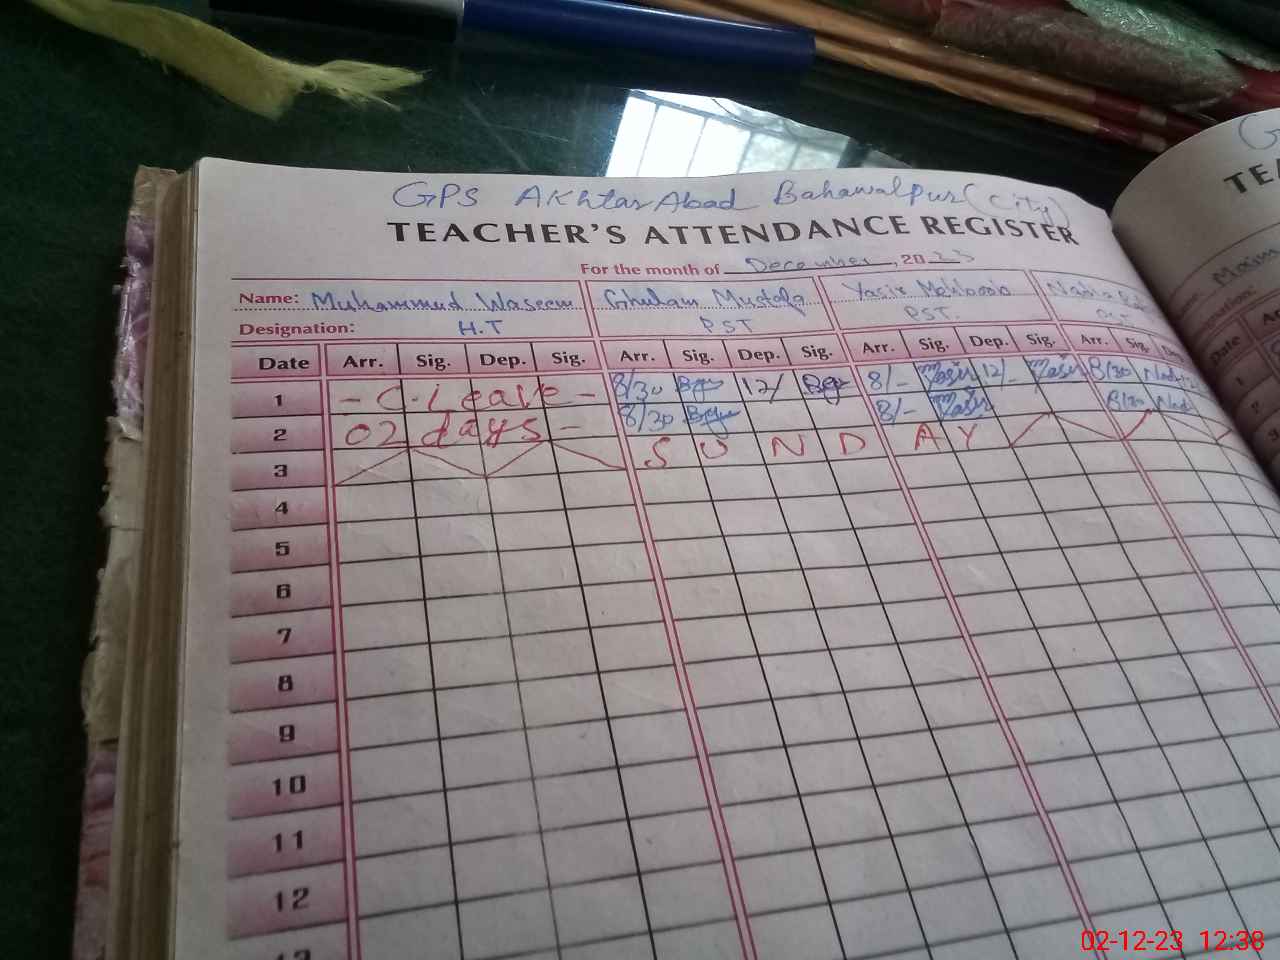 GPS Akhtar Abad Bahawalpur (City)
TEACHER'S ATTENDANCE REGISTER
For the month of December, 2023
Name: Muhammud Waseem Ghulam Mustafa Yasir Mehboob Nadia
Designation: H.T PST PST. PST
Date Arr. Sig. Dep. Sig. Arr. Sig. Dep. Sig. Arr. Sig. Dep. Sig. Arr. Sig.
1 - C. Leave - 8/30 12/ 8/- Yasir 12/- Yasir 8/30
2 02 days - 8/30 8/- Yasir 8/30
3 S U N D A Y
4
5
6
7
8
9
10
11
12
13
02-12-23 12:38